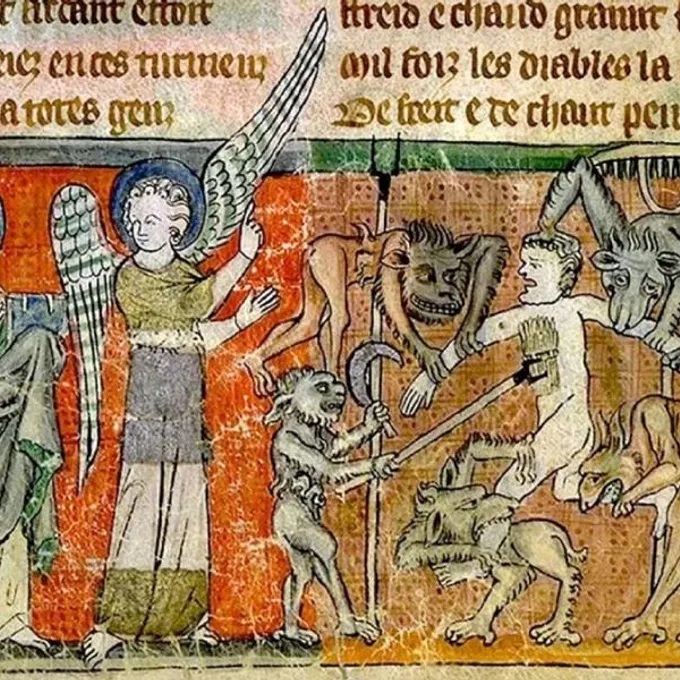 ardant estoit
en ces turmenz
a totes genz
ffreid e chaud
Mil foiz les diables la
De freit e de chaut